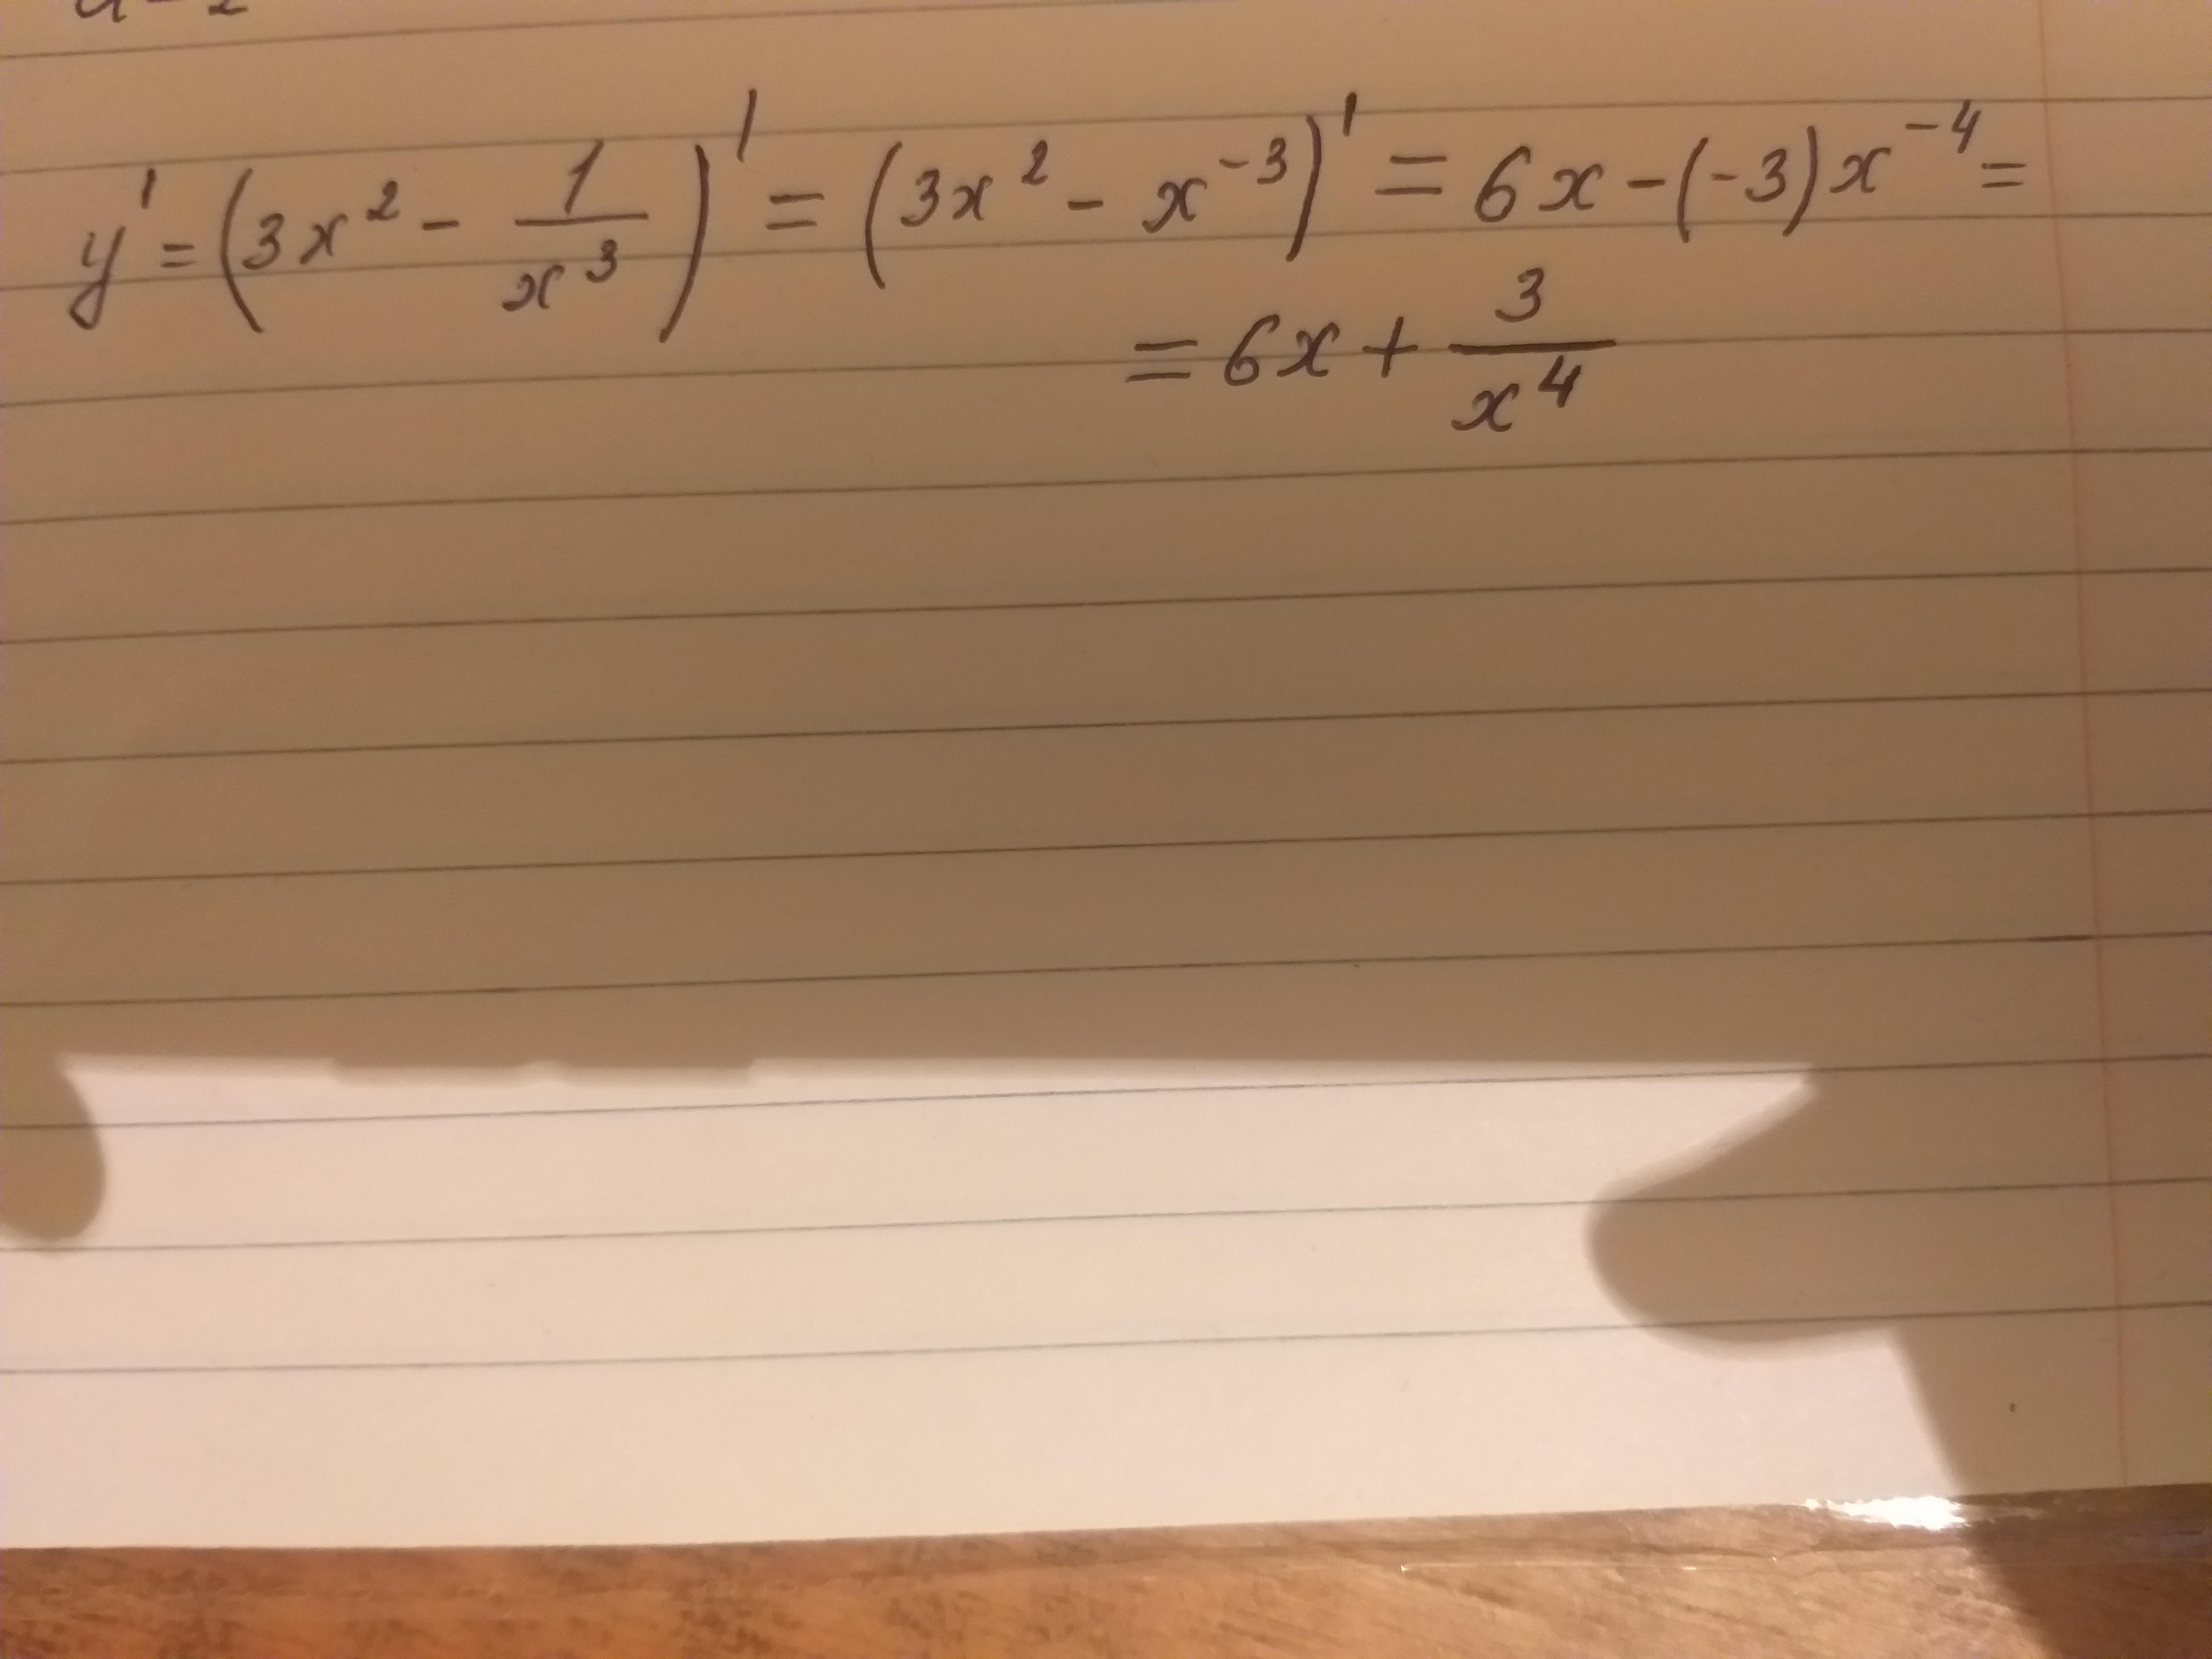 y' = (3x² - 1/x³)' = (3x² - x⁻³)' = 6x - (-3)x⁻⁴ =
= 6x + 3/x⁴